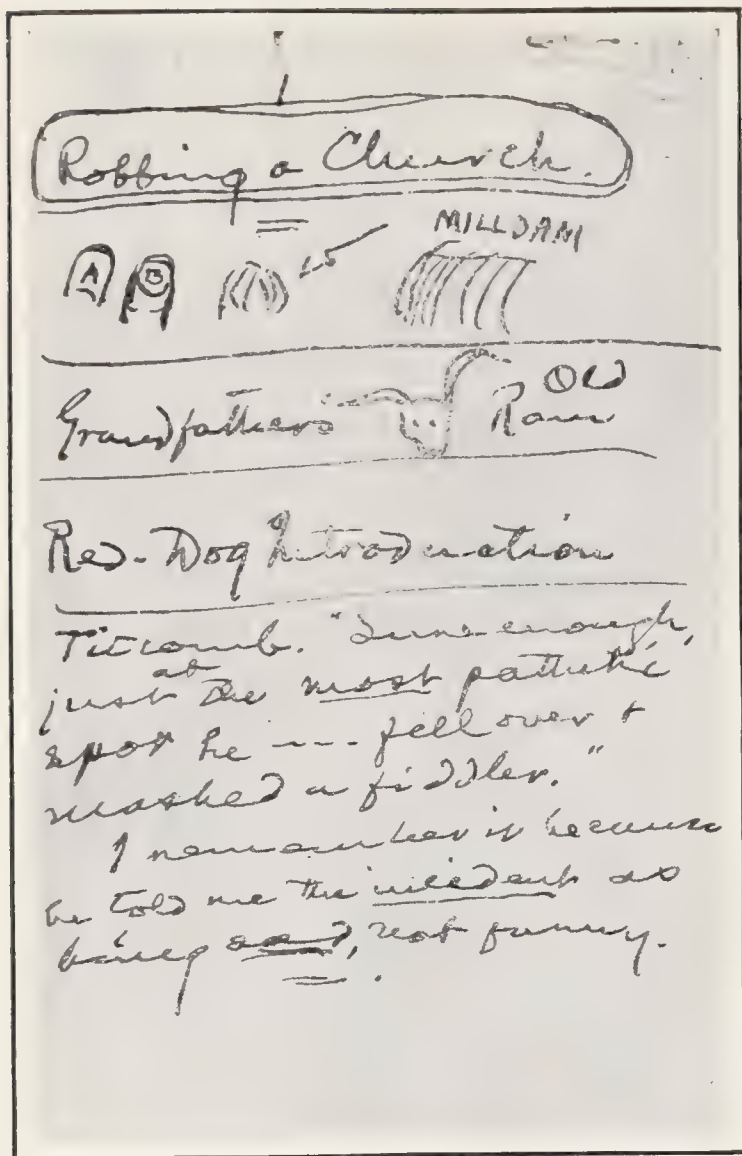 Robbing a Church.
MILLDAM
A B 15
Grandfather's Old
Ram
Red-Dog Introduction
Titcomb. "Sure enough,
just at the most pathetic
spot he --- fell over +
mashed a fiddler."
I remember it because
he told me the incident as
being sad, not funny.